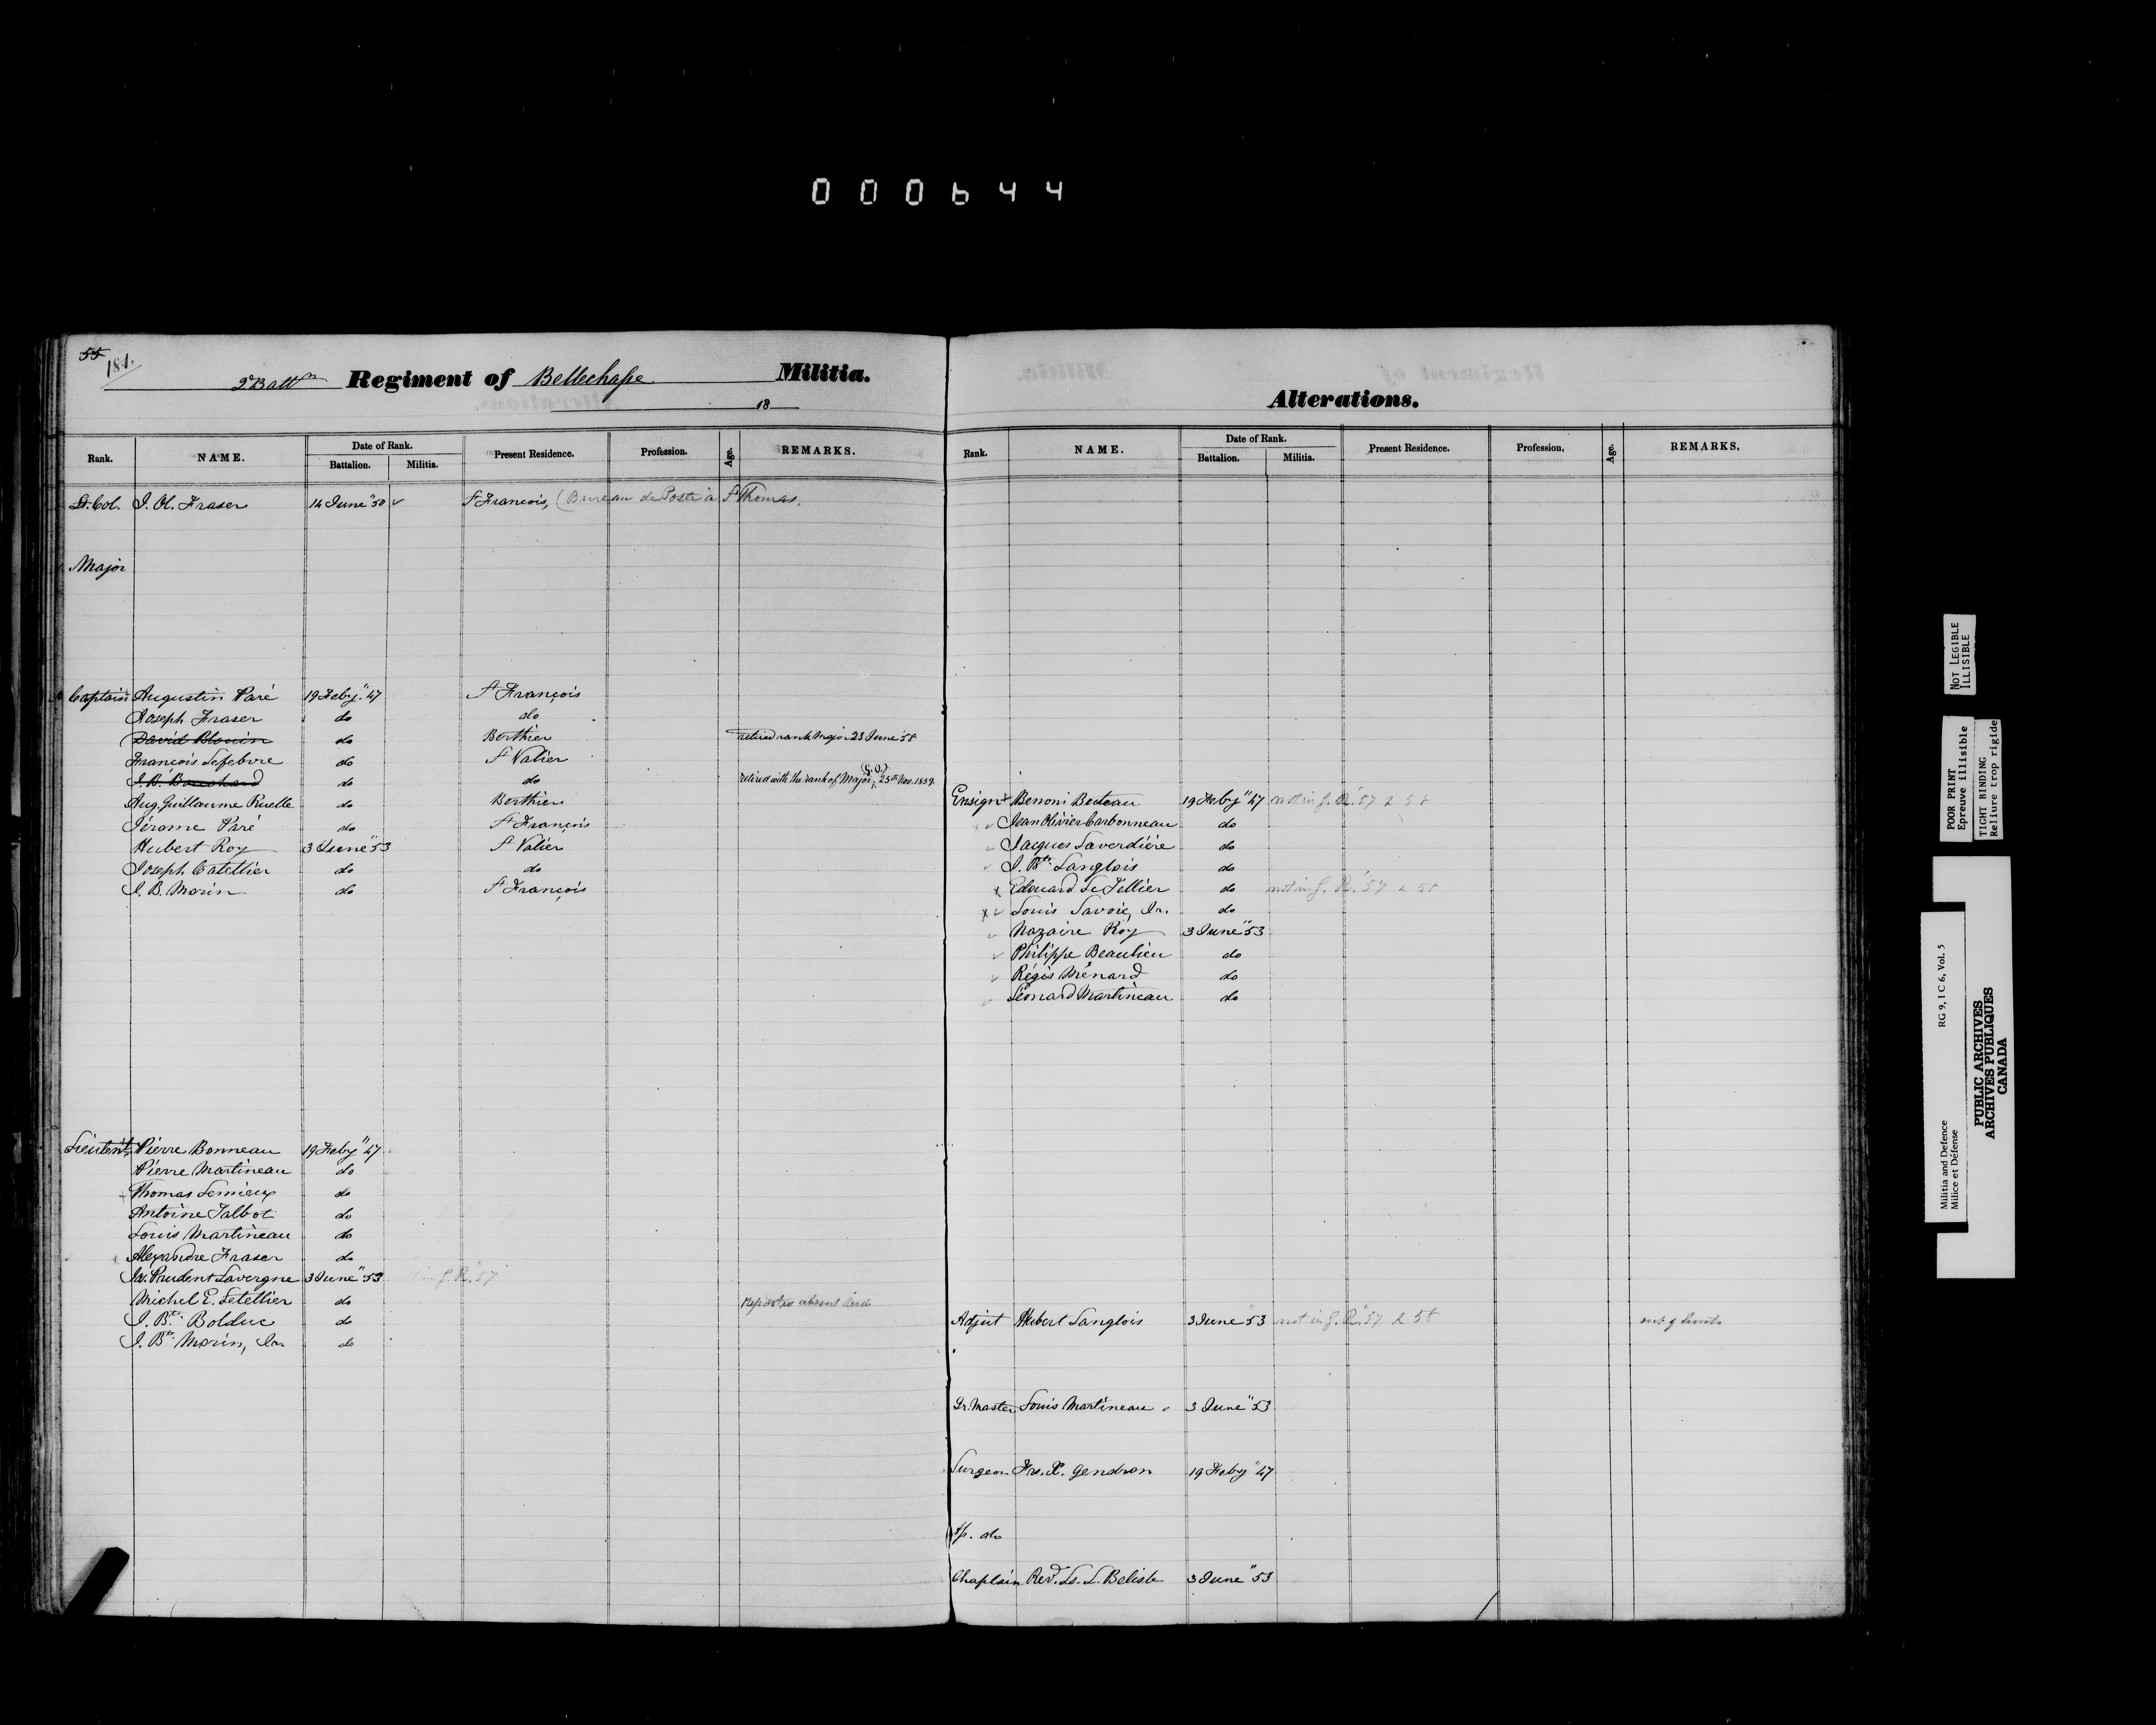 000644
55
181.
2d Battn Regiment of Bellechasse Militia.
18
Rank. NAME. Date of Rank. Battalion. Militia. Present Residence. Profession. Age. REMARKS.
Lt. Col. J. Ol. Fraser 14 June "50 St François, (Bureau de Poste à St Thomas.
Major
Captain Augustin Paré 19 Feby. "47 St François
Joseph Fraser do do
David Blouin do Berthier retired rank Major 23 June '58
François Lefebvre do St Valier
J. B. Bouchard do do retired with the rank of Major, G.O. 25th Nov. 1859.
Aug. Guillaume Ruelle do Berthier
Jérome Paré do St François
Hubert Roy 3 June "53 St Valier
Joseph Catellier do do
J. B. Morin do St François
Lieutent Pierre Bonneau 19 Feby "47
Pierre Martineau do
Thomas Lemieux do
Antoine Talbot do
Louis Martineau do
Alexandre Fraser do
Js. Prudent Lavergne 3 June "53 not in G. R. '57
Michel E. Letellier do Reported absent
J. Bte. Bolduc do
J. Bte Morin, Jr. do
Alterations.
Rank. NAME. Date of Rank. Battalion. Militia. Present Residence. Profession. Age. REMARKS.
Ensign Benoni Buteau 19 Feby "47 not in G. R. '57 & 58
Jean Olivier Carbonneau do
Jacques Laverdiére do
J. Bte. Langlois do
Edouard Le Tellier do not in G. R. '57 & 58
Louis Lavoie, Jr. do
Nazaire Roy 3 June "53
Philippe Beaulieu do
Régis Ménard do
Léonard Martineau do
Adjut Hubert Langlois 3 June "53 not in G. R. '57 & 58 out of limits
Qr. Master Louis Martineau 3 June "53
Surgeon Frs. X. Gendron 19 Feby "47
do
Chaplain Revd. Ls. L. Belisle 3 June "53
NOT LEGIBLE
ILLISIBLE
POOR PRINT
Epreuve illisible
TIGHT BINDING
Reliure trop rigide
Militia and Defence
Milice et Défense
RG 9, I C 6, Vol. 5
PUBLIC ARCHIVES
ARCHIVES PUBLIQUES
CANADA